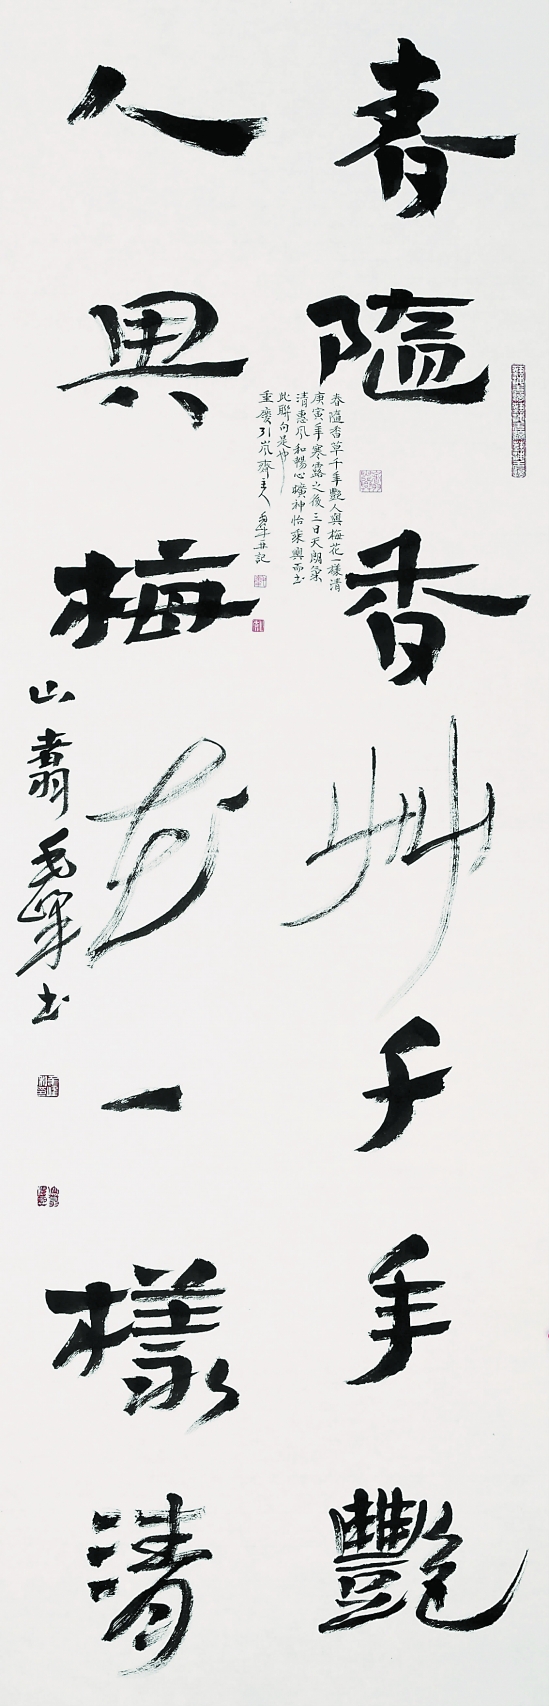 春隨香艸千年艷
春隨香草千年艷人與梅花一樣清
庚寅年寒露之後三日天朗氣
清惠风和暢心曠神怡乘興而书
此聯句是也
重慶引岚齋主人毛峰又記
人與梅花一樣清
山翥毛峰书